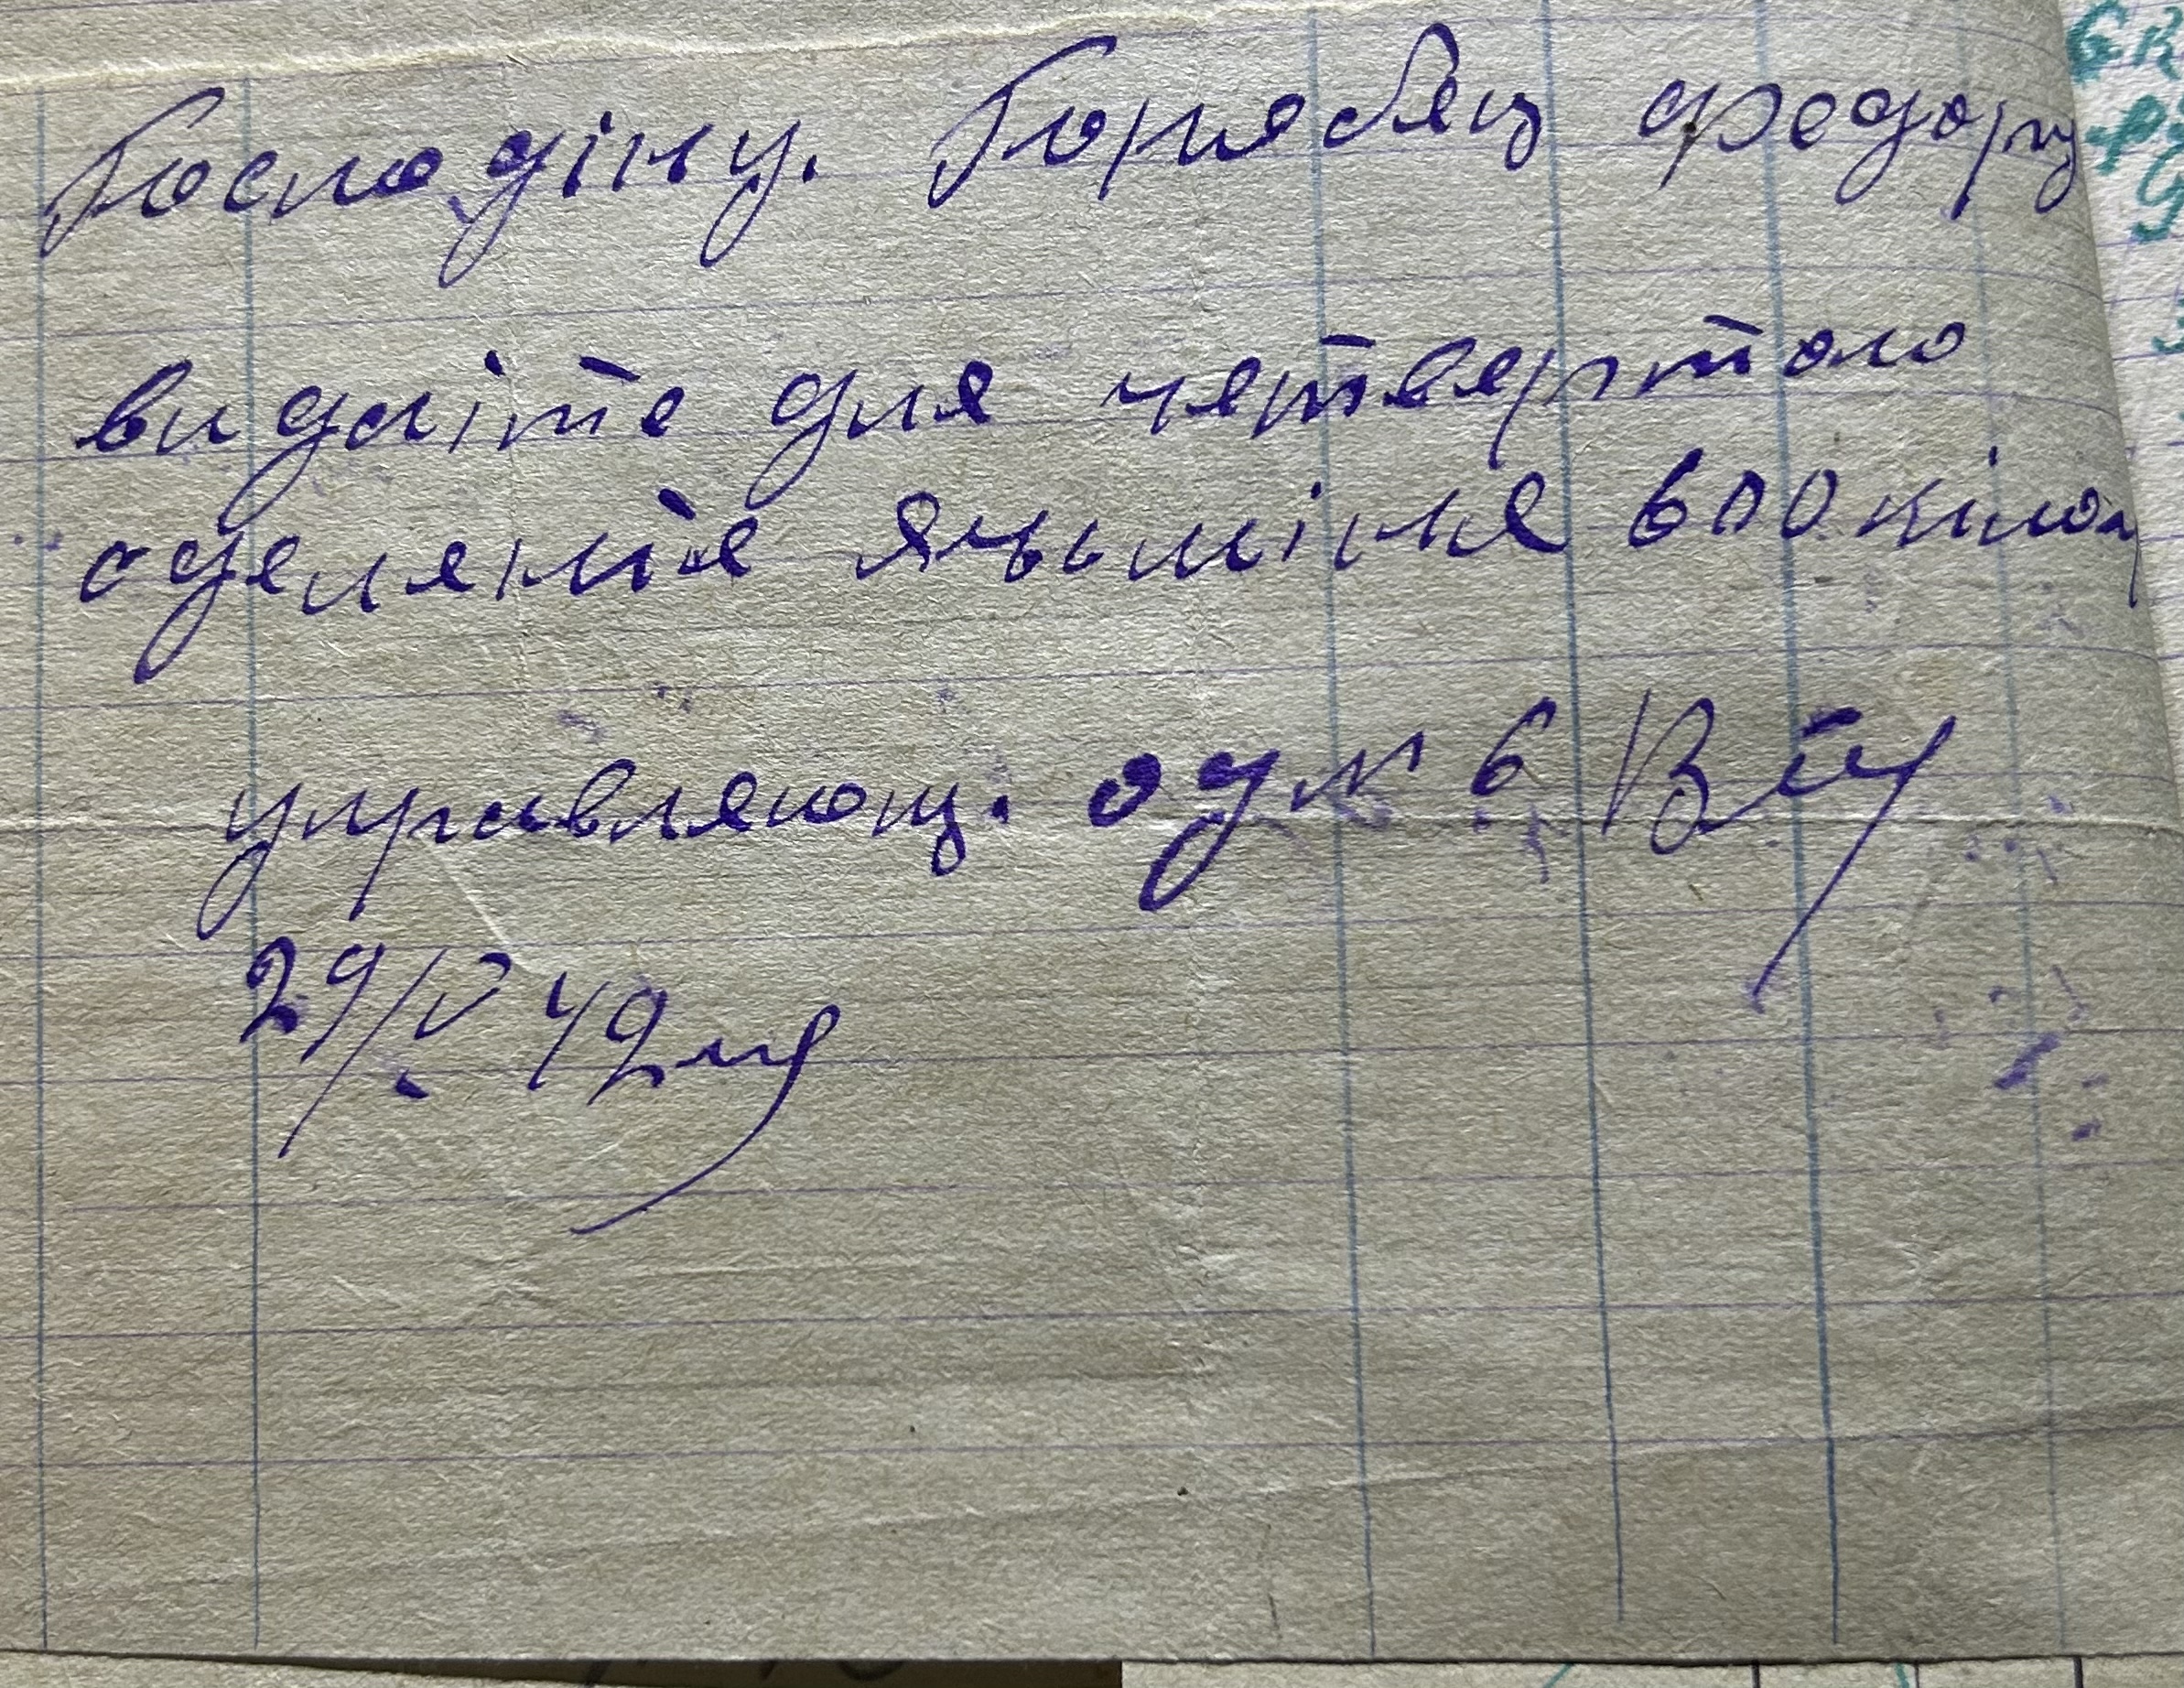 Господіну. Горябец федору
видаіте для четвертого
оделенія язьміня 600 кілог
управляющ. од N 6
29/V 42